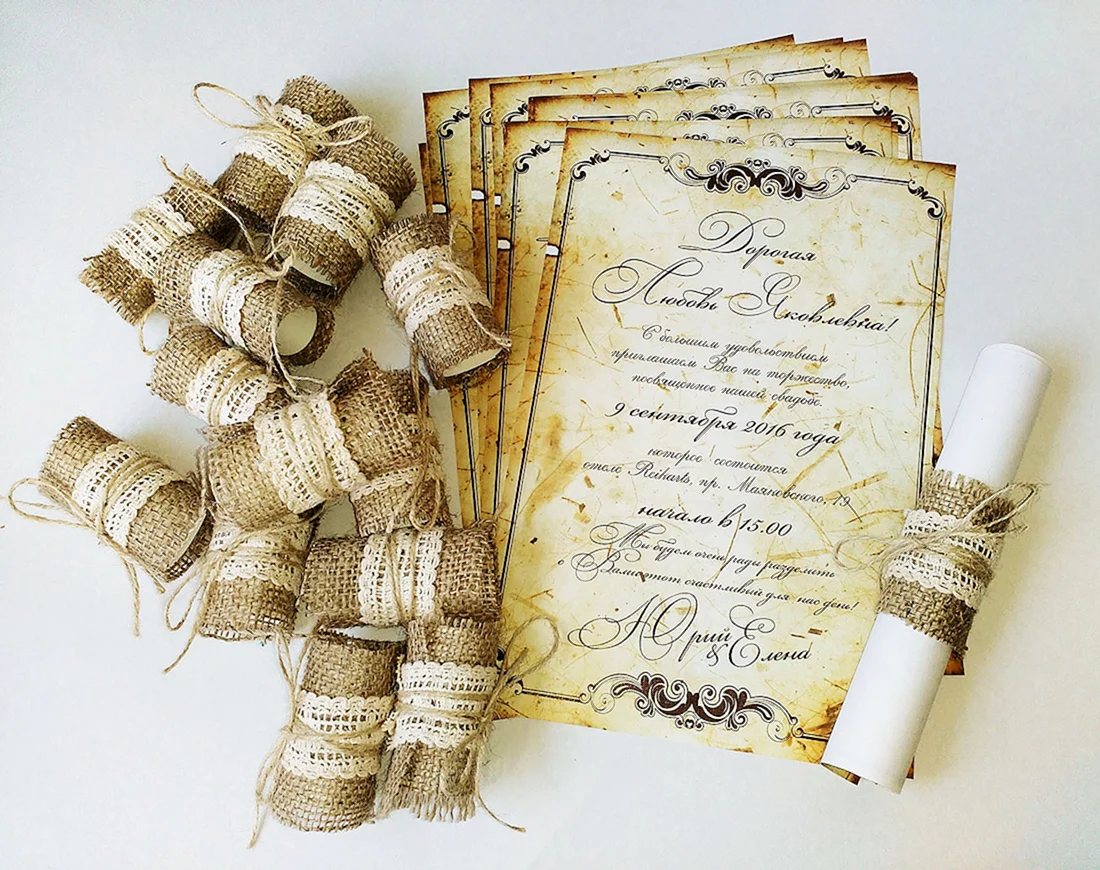 Дорогая
Любовь Яковлевна!
С большим удовольствием
приглашаем Вас на торжество,
посвященное нашей свадьбе.
9 сентября 2016 года
которое состоится
отеле Reikarts, пр. Маяковского, 19
начало в 15.00
Мы будем очень рады разделить
с Вами этот счастливый для нас день!
Юрий
& Елена